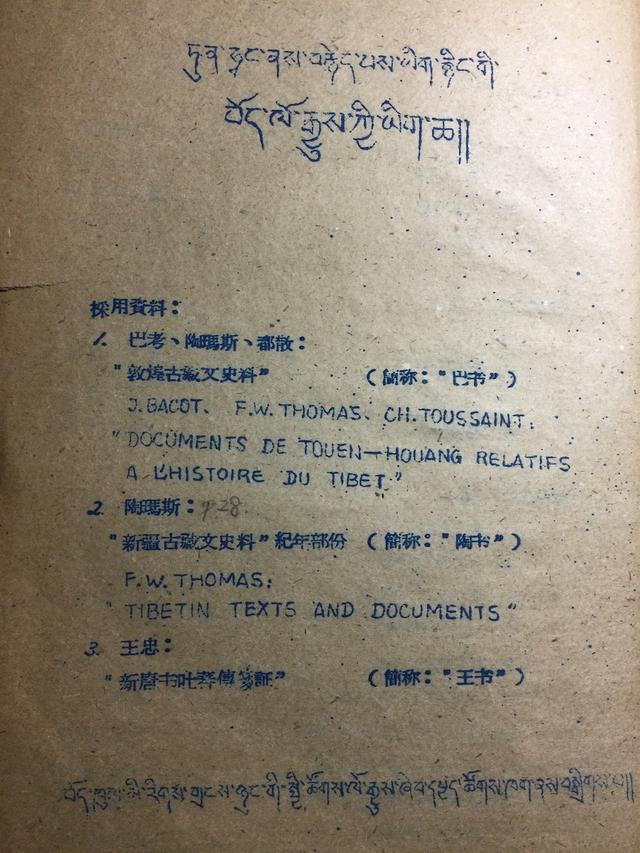 ཏུན་ཧྭང་ནས་བརྙེད་པས་ཡིག་རྙིང་གི་
བོད་ལོ་རྒྱུས་ཀྱི་ཡིག་ཆ།།
採用資料：
1. 巴考、陶瑪斯、都散：
"敦煌古藏文史料" （簡称："巴书"）
J. BACOT、 F.W. THOMAS、 CH. TOUSSAINT:
"DOCUMENTS DE TOUEN—HOUANG RELATIFS
A L'HISTOIRE DU TIBET"
2. 陶瑪斯： p28
"新疆古藏文史料"紀年部份 （簡称："陶书"）
F.W. THOMAS:
"TIBETIN TEXTS AND DOCUMENTS"
3. 王忠：
"新唐书吐蕃傳箋証" （簡称："王书"）
བོད་ཁུལ་མི་རིགས་གྲངས་ཉུང་གི་སྤྱི་ཚོགས་ལོ་རྒྱུས་ཞིབ་དཔྱད་ཚོགས་ཁག་ནས་བསྒྲིགས་པ།།